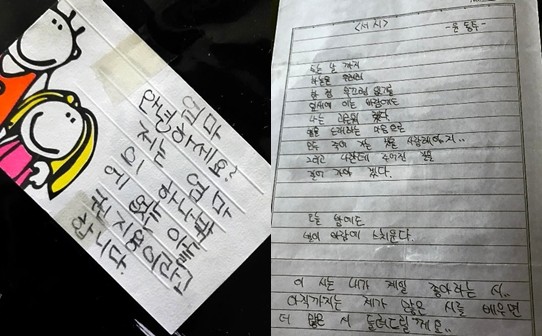 엄마
안녕하세요?
저는 엄마
의 하나밖
에 없는 아들
권지용이라고
합니다.
<서시>
-윤동주-
죽는 날 까지
하늘을 우러러
한 점 부끄럼 없기를
잎새에 이는 바람에도
나는 괴로워 했다.
별을 노래하는 마음으로
모든 죽어 가는 것을 사랑해야지..
그리고 나한테 주어진 길을
걸어 가야 겠다.
오늘 밤에도
별이 바람에 스치운다.
이 시는 내가 제일 좋아하는 시..
아직까지는 제가 많은 시를 배우면
더 많은 시 들려드릴께요.